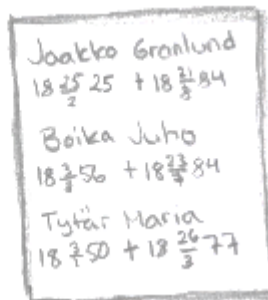 Jaakko Granlund
18 25/2 25 + 18 21/8 84
Boika Juho
18 56 + 18 84
Tytär Maria
18 50 + 18 26/3 77